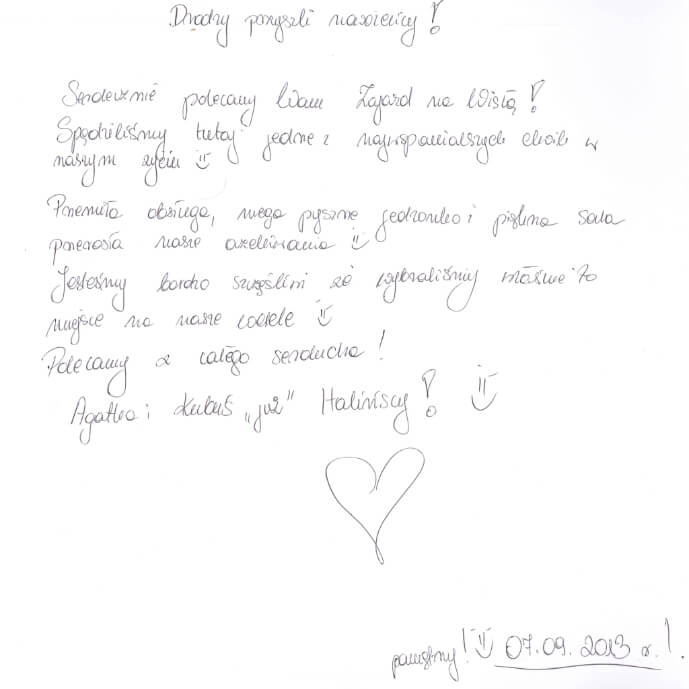 Drodzy przyszli narzeczeni!
Serdecznie polecamy Wam Zajazd na Wisłą!
Spędziliśmy tutaj jedne z najwspanialszych chwil w
naszym życiu :)
Przemiła obsługa, mega pyszne jedzonko i piękna sala
przerosła nasze oczekiwania :)
Jesteśmy bardzo szczęśliwi że wybraliśmy właśnie to
miejsce na nasze wesele :)
Polecamy z całego serducha!
Agatka i Kubuś „już” Halińscy! :)
pamiętny! :) 07.09.2013 r.!